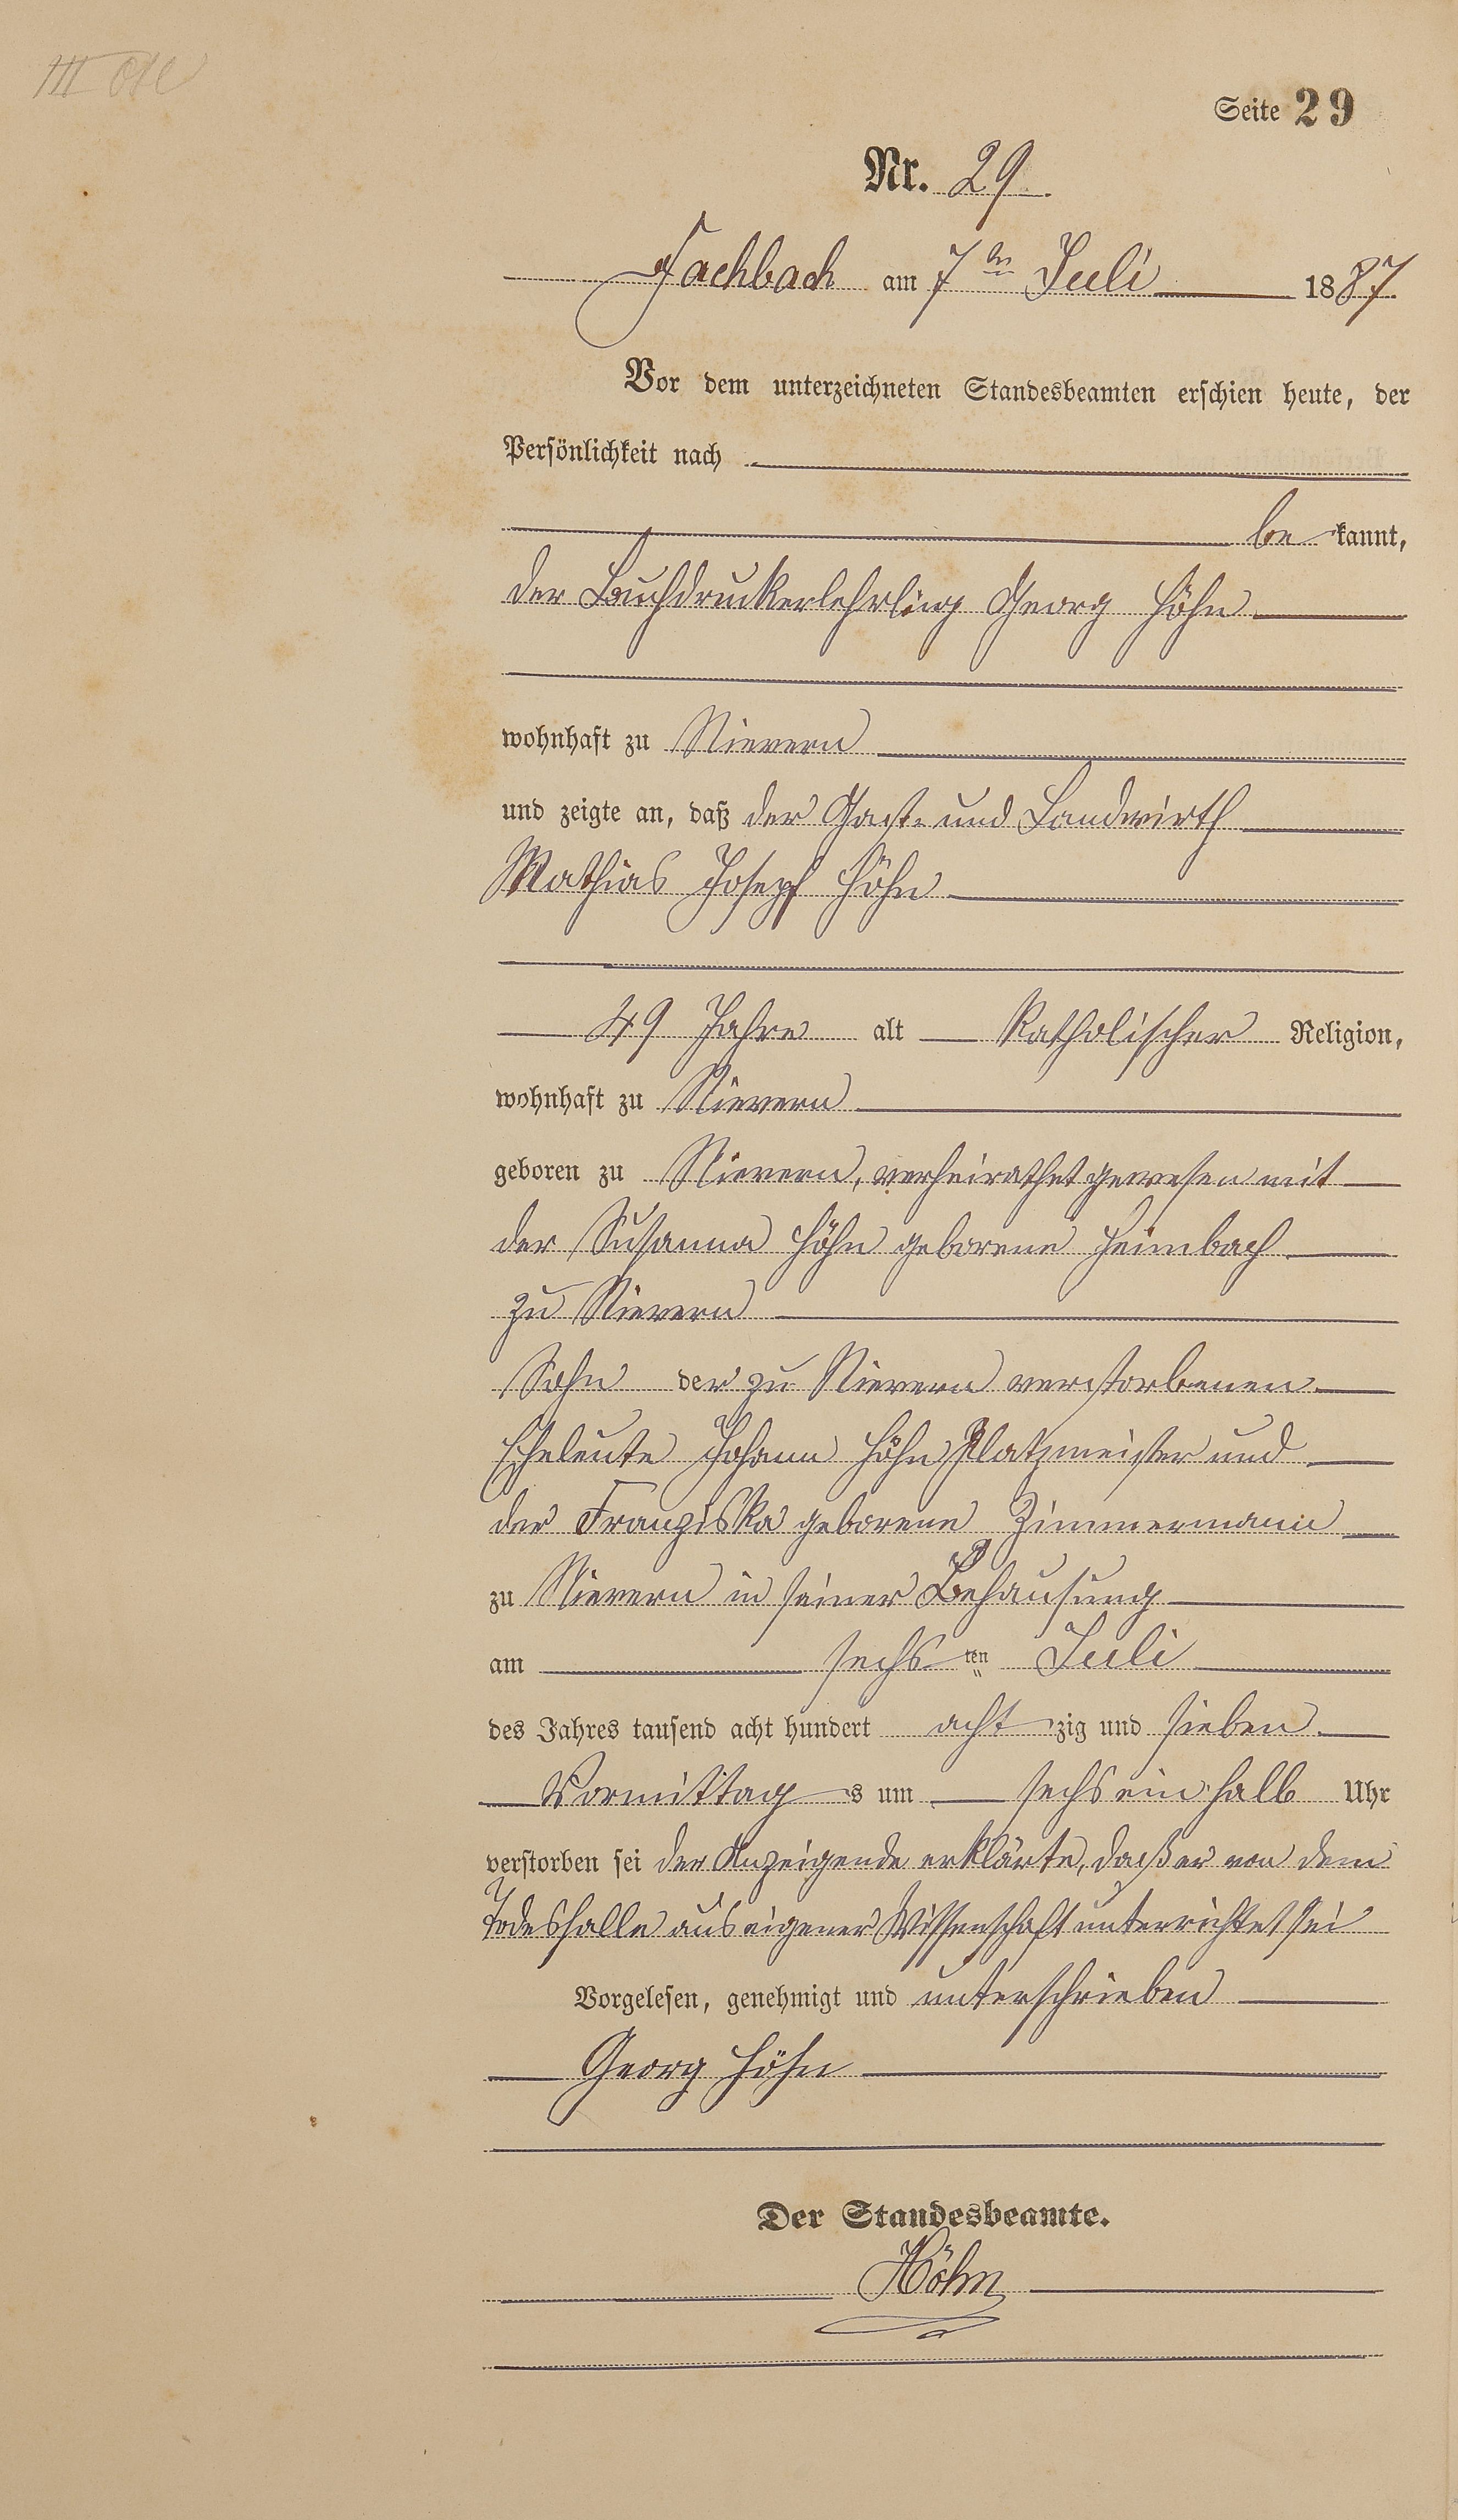 Seite 29
Nr. 29
Fachbach am 7ten Juli 1887.
Vor dem unterzeichneten Standesbeamten erschien heute, der
Persönlichkeit nach
bekannt,
der Buchdruckerlehrling Georg Höhn
wohnhaft zu Nievern
und zeigte an, daß der Gast- und Landwirth
Mathias Joseph Höhn
49 Jahre alt katholischer Religion,
wohnhaft zu Nievern
geboren zu Nievern, verheirathet gewesen mit
der Susanna Höhn geborene Heimbach
zu Nievern
Sohn der zu Nievern verstorbenen
Eheleute Johann Höhn Platzmeister und
der Franziska geborene Zimmermann
zu Nievern in seiner Behausung
am sechsten Juli
des Jahres tausend acht hundert achtzig und sieben
Vormittags um sechs ein halb Uhr
verstorben sei der Anzeigende erklärte, daß er von dem
Todesfalle aus eigener Wissenschaft unterrichtet sei
Vorgelesen, genehmigt und unterschrieben
Georg Höhn
Der Standesbeamte.
Höhn